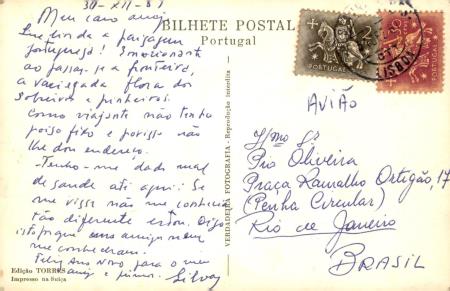 30-XII-
Meu caro amigo
Que linda a paisagem
portuguesa! Emocionante
ao passar-se a fronteira,
a variegada flora dos
sobreiros e pinheiros.
Como viajante não tenho
poiso fixo e por isso não
lhe dou endereço.
-Tenho-me dado mal
de saude até aqui: Se
me visse não me conhecia
tão diferente estou. Digo
isto porque uns amigos nem
me conheceram.
Feliz Ano Novo para o meu
amigo e primos. Silvay
Edição TORRES
Impresso na Suíça
BILHETE POSTAL
Portugal
VERDADEIRA FOTOGRAFIA - Reprodução interdita
PORTUGAL
PORTUGAL
LISBOA
AVIÃO
Ilmo Sr
Pio Oliveira
Praça Ramalho Ortigão, 17
(Penha Circular)
Rio de Janeiro
BRASIL